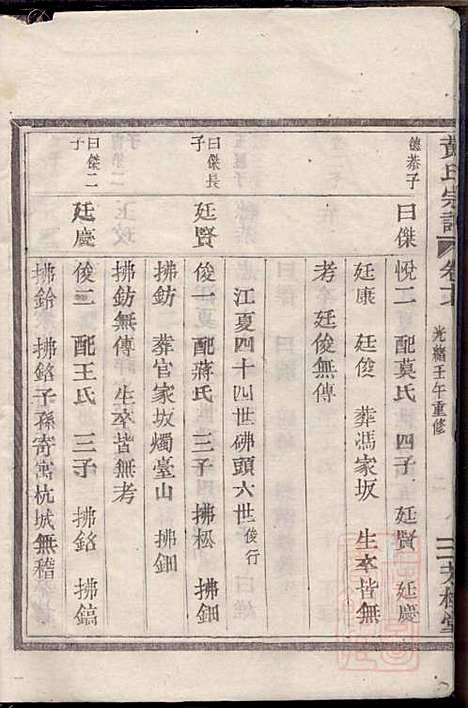 黄氏宗譜
卷之
光緒壬午重修
二
三大槐堂
德恭子
曰傑 悅二 配莫氏 四子 廷賢 廷慶
廷康 廷俊 葬馮家坂 生卒皆無
考 廷俊無傳
江夏四十四世佛頭六世 俊行
曰傑長子
廷賢 俊一 配蔣氏 三子 拂松 拂鈿
拂鈁 葬官家坂燭臺山
拂鈁無傳 生卒皆無考
曰傑二子
廷慶 俊三 配王氏 三子 拂銘 拂鎬
拂鈴 拂銘子孫寄寓杭城無稽